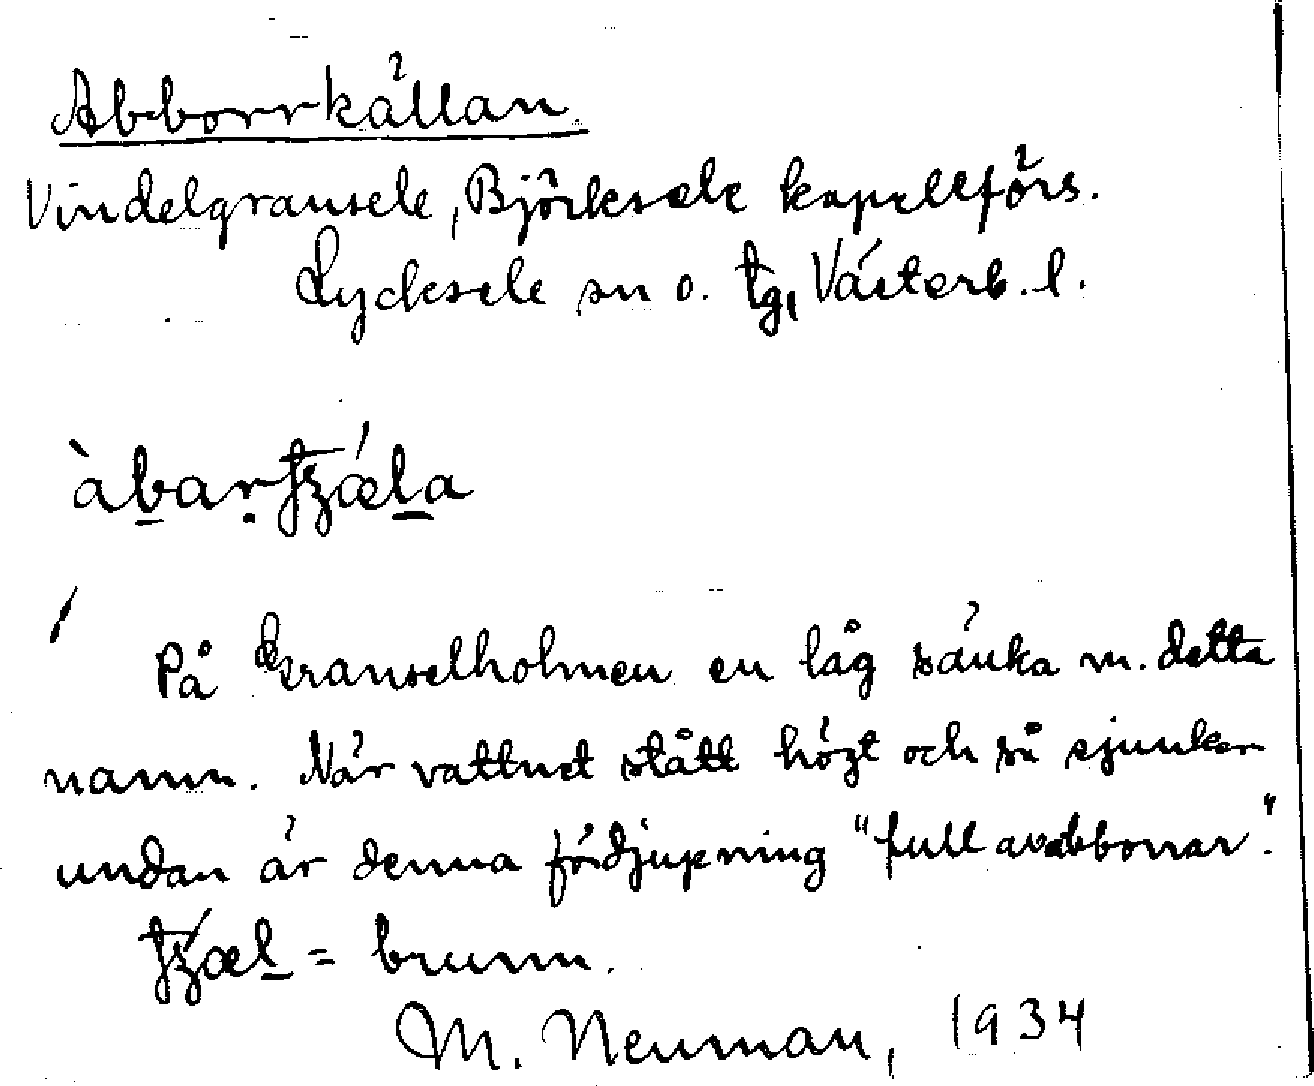 Abborrkällan
Vindelgransele, Björksele kapellförs.
Lycksele sn o. tg, Västerb. l.
På Granselholmen en låg sänka m. detta
namn. När vattnet stått högt och så sjunker
undan är denna fördjupning "full av abborrar".
= brunn.
M. Neuman, 1934